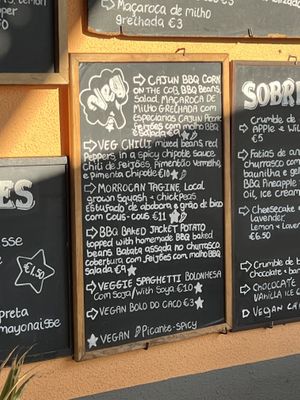 Maçaroca de milho
grelhada €3
Veg
CAJUN BBQ CORN
ON THE COB, BBQ Beans,
Salad. MAÇAROCA DE
MILHO GRELHADA com
Especiarias CAJUN
Feijões com molho BBQ
Salada €9
VEG CHILLI mixed beans, red
Peppers, in a spicy chipotle sauce
Chili de feijões, Pimento Vermelho,
e pimenta chipotle €10
MORROCAN TAGINE Local
grown Squash + chickpeas
Estufado de abobora + grão de bico
com Cous-Cous €11
BBQ BAKED JACKET POTATO
topped with homemade BBQ baked
beans Batata assada no churrasco
cobertura com feijões com molho BBQ
Salada €9
VEGGIE SPAGHETTI BOLONHESA
com Soja/with Soya €10
VEGAN BOLO DO CACO €3
VEGAN Picante-spicy
ES
sse
€1,50
preta
mayonaisse
SOBRE
Crumble de
Apple + Wil
€5
Fatias de an
churrasco com
baunilha e gel
BBQ Pineapple
Oil, Ice cream
Cheesecake
Lavender
Lemon + Laven
€6.50
Crumble de b
Chocolate + ban
CHOCOLATE
Vanilla ice c
VEGAN CH